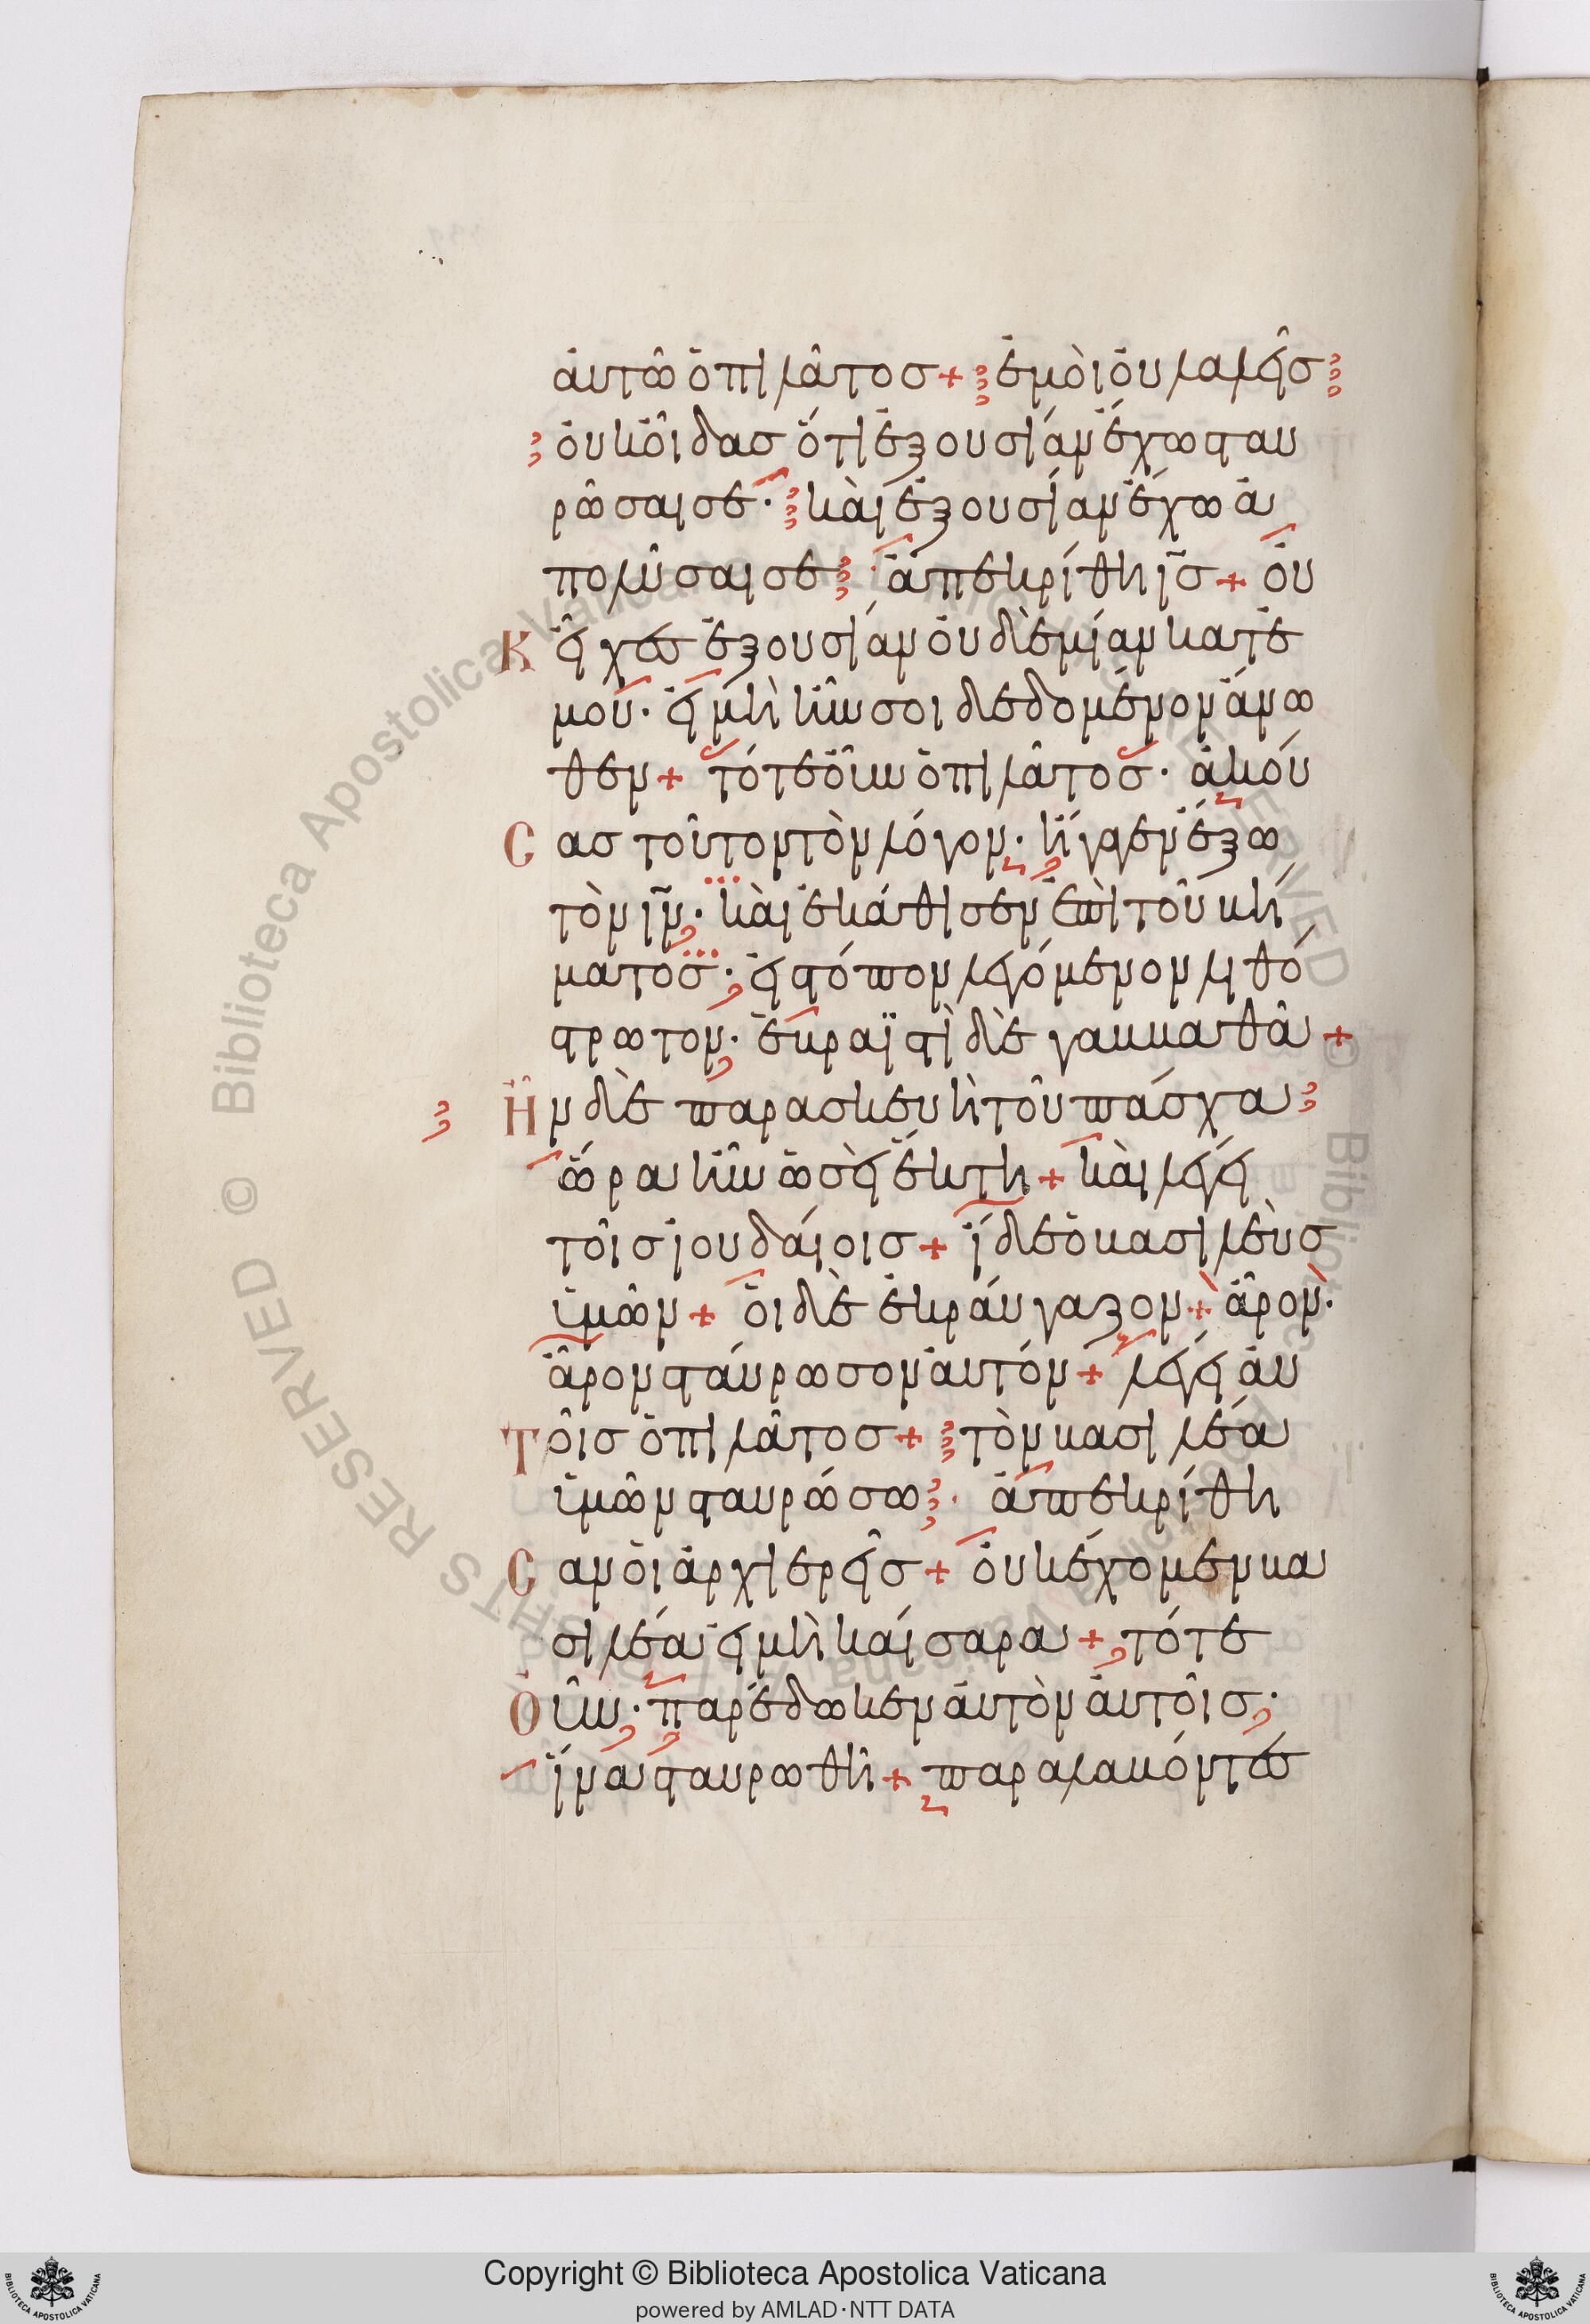 ἀυτῶ ὁ πιλᾶτοσ + ἐμὸι ὀυ λαλεῖσ
ὀυκ ὀῖδασ ὅτι ἐξουσίαν ἔχω σταυ
ρῶσαι σε· κὰι ἐξουσίαν ἔχω ἀ
πολῦσαι σε ἀπεκρίθη ισ + ὀυ
κ εἶχεσ ἐξουσίαν ὀυδὲμίαν κατ ἐ
μοῦ· εἰ μὴ ἦν σοι δεδομένον ἄνω
θεν + τότε ὀῦν ὁ πιλᾶτοσ· ἀκόυ
Cασ τοῦτον τὸν λόγον· ἤγαγεν ἔξω
τὸν ιν· κὰι ἐκάθισεν ἐπὶ τοῦ βή
ματοσ· εἰσ τόπον λεγόμενον λιθό
στρωτον· ἑβραϊστὶ δὲ γαββαθᾶ +
Ἦν δὲ παρασκευὴ τοῦ πάσχα
ὥρα ἦν ὡσεὶ ἕκτη + κὰι λέγει
τοῖσ ἰουδάιοισ + ἴδε ὁ βασιλεὺσ
ὑμῶν + ὁι δὲ ἐκράυγαζον + ἆρον·
ἆρον σταύρωσον ἀυτόν + λέγει ἀυ
Τοῖσ ὁ πιλᾶτοσ + τὸν βασιλέα
ὑμῶν σταυρώσω· ἀπεκρίθη
Cαν ὁι ἀρχιερεῖσ + ὀυκ ἔχομεν βα
σιλέα εἰ μὴ κάισαρα + τότε
Ὀῦν· παρέδωκεν ἀυτὸν ἀυτοῖσ·
ἵνα σταυρωθῆ + παραλαβόντεσ
Copyright © Biblioteca Apostolica Vaticana
powered by AMLAD·NTT DATA